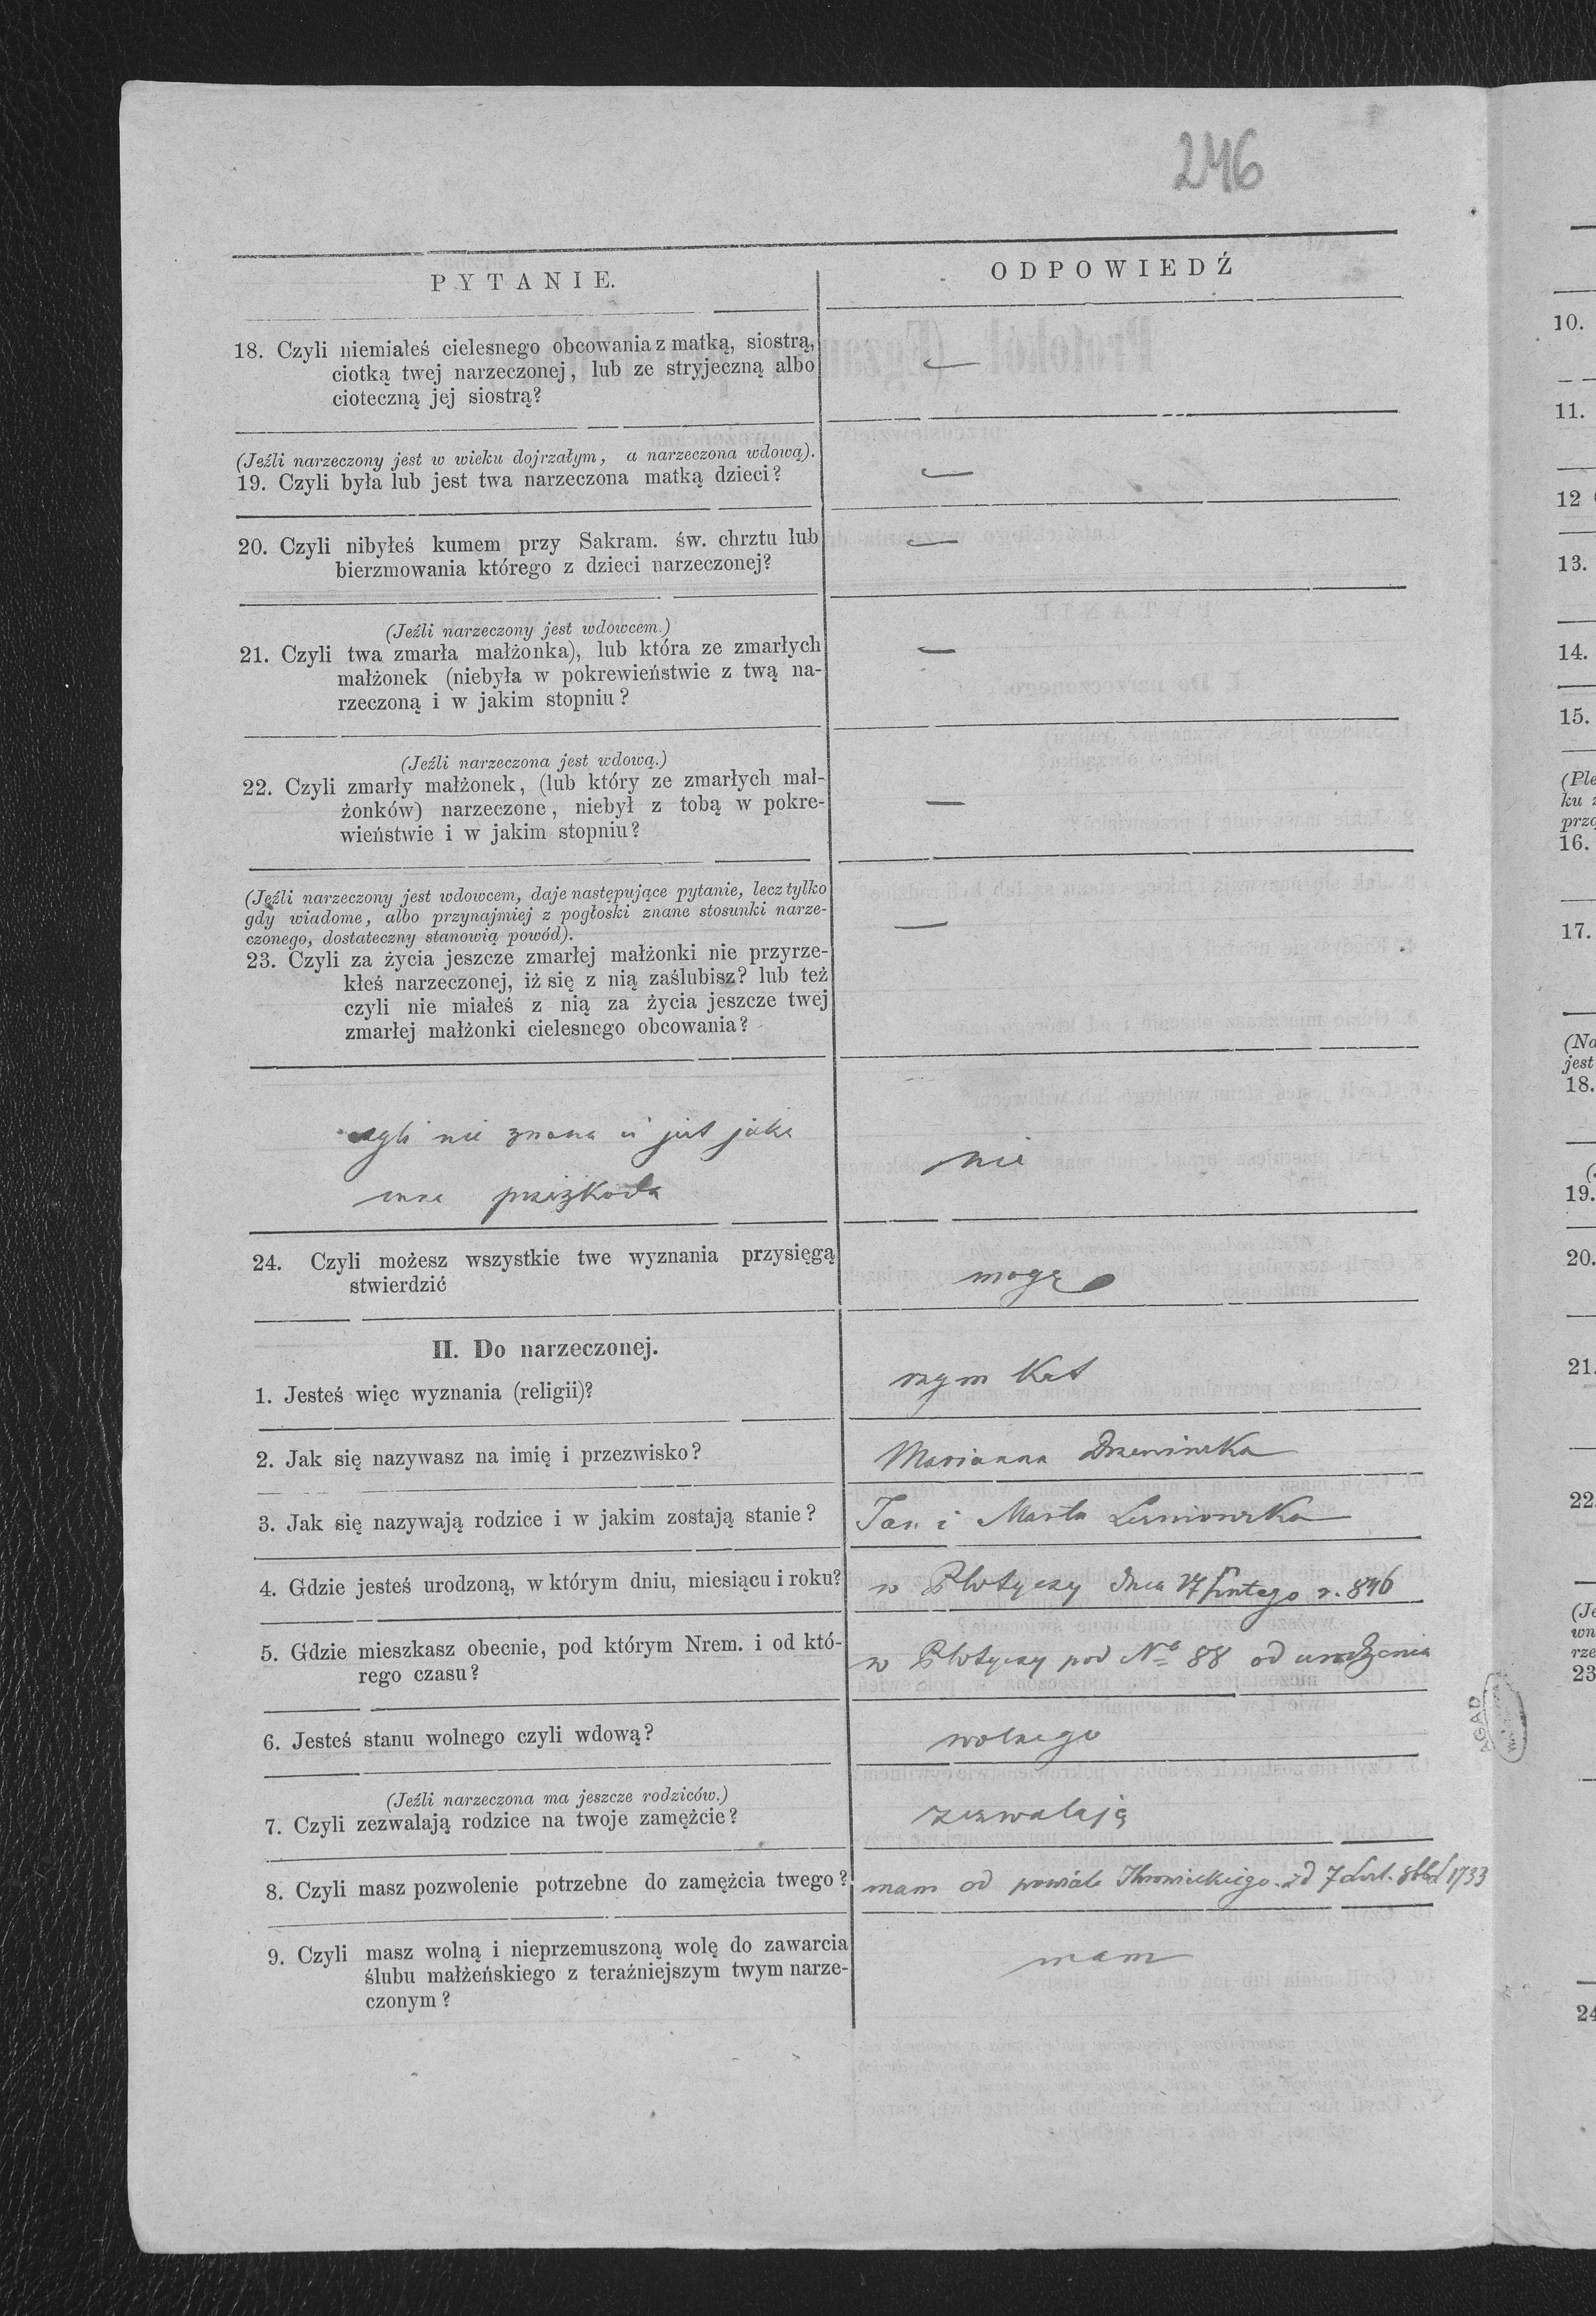 246
PYTANIE.
ODPOWIEDŹ
18. Czyli niemiałeś cielesnego obcowania z matką, siostrą,
ciotką twej narzeczonej, lub ze stryjeczną albo
cioteczną jej siostrą?
—
(Jeźli narzeczony jest w wieku dojrzałym, a narzeczona wdową).
19. Czyli była lub jest twa narzeczona matką dzieci?
—
20. Czyli nibyłeś kumem przy Sakram. św. chrztu lub
bierzmowania którego z dzieci narzeczonej?
—
(Jeźli narzeczony jest wdowcem.)
21. Czyli twa zmarła małżonka), lub która ze zmarłych
małżonek (niebyła w pokrewieństwie z twą na-
rzeczoną i w jakim stopniu?
—
(Jeźli narzeczona jest wdową.)
22. Czyli zmarły małżonek, (lub który ze zmarłych mał-
żonków) narzeczone, niebył z tobą w pokre-
wieństwie i w jakim stopniu?
—
(Jeźli narzeczony jest wdowcem, daje następujące pytanie, lecz tylko
gdy wiadome, albo przynajmiej z pogłoski znane stosunki narze-
czonego, dostateczny stanowią powód).
23. Czyli za życia jeszcze zmarłej małżonki nie przyrze-
kłeś narzeczonej, iż się z nią zaślubisz? lub też
czyli nie miałeś z nią za życia jeszcze twej
zmarłej małżonki cielesnego obcowania?
—
czyli nie znana ci jest jaka
inna przeszkoda
nie
24. Czyli możesz wszystkie twe wyznania przysięgą
stwierdzić
mogę
II. Do narzeczonej.
1. Jesteś więc wyznania (religii)?
rzym Kat
2. Jak się nazywasz na imię i przezwisko?
Marianna
3. Jak się nazywają rodzice i w jakim zostają stanie?
Jan i Marta
4. Gdzie jesteś urodzoną, w którym dniu, miesiącu i roku?
w Płotyczy dnia lutego r. 846
5. Gdzie mieszkasz obecnie, pod którym Nrem. i od któ-
rego czasu?
w Płotyczy pod No 88 od urodzenia
6. Jesteś stanu wolnego czyli wdową?
wolnego
(Jeźli narzeczona ma jeszcze rodziców.)
7. Czyli zezwalają rodzice na twoje zamężcie?
zezwalają
8. Czyli masz pozwolenie potrzebne do zamężcia twego?
mam od 1733
9. Czyli masz wolną i nieprzemuszoną wolę do zawarcia
ślubu małżeńskiego z teraźniejszym twym narze-
czonym?
mam
AGAD
10.
11.
12
13.
14.
15.
(Ple
ku
prze
16.
17.
(Na
jest
18.
19.
20.
21.
22.
(Je
wn
rze
23
24